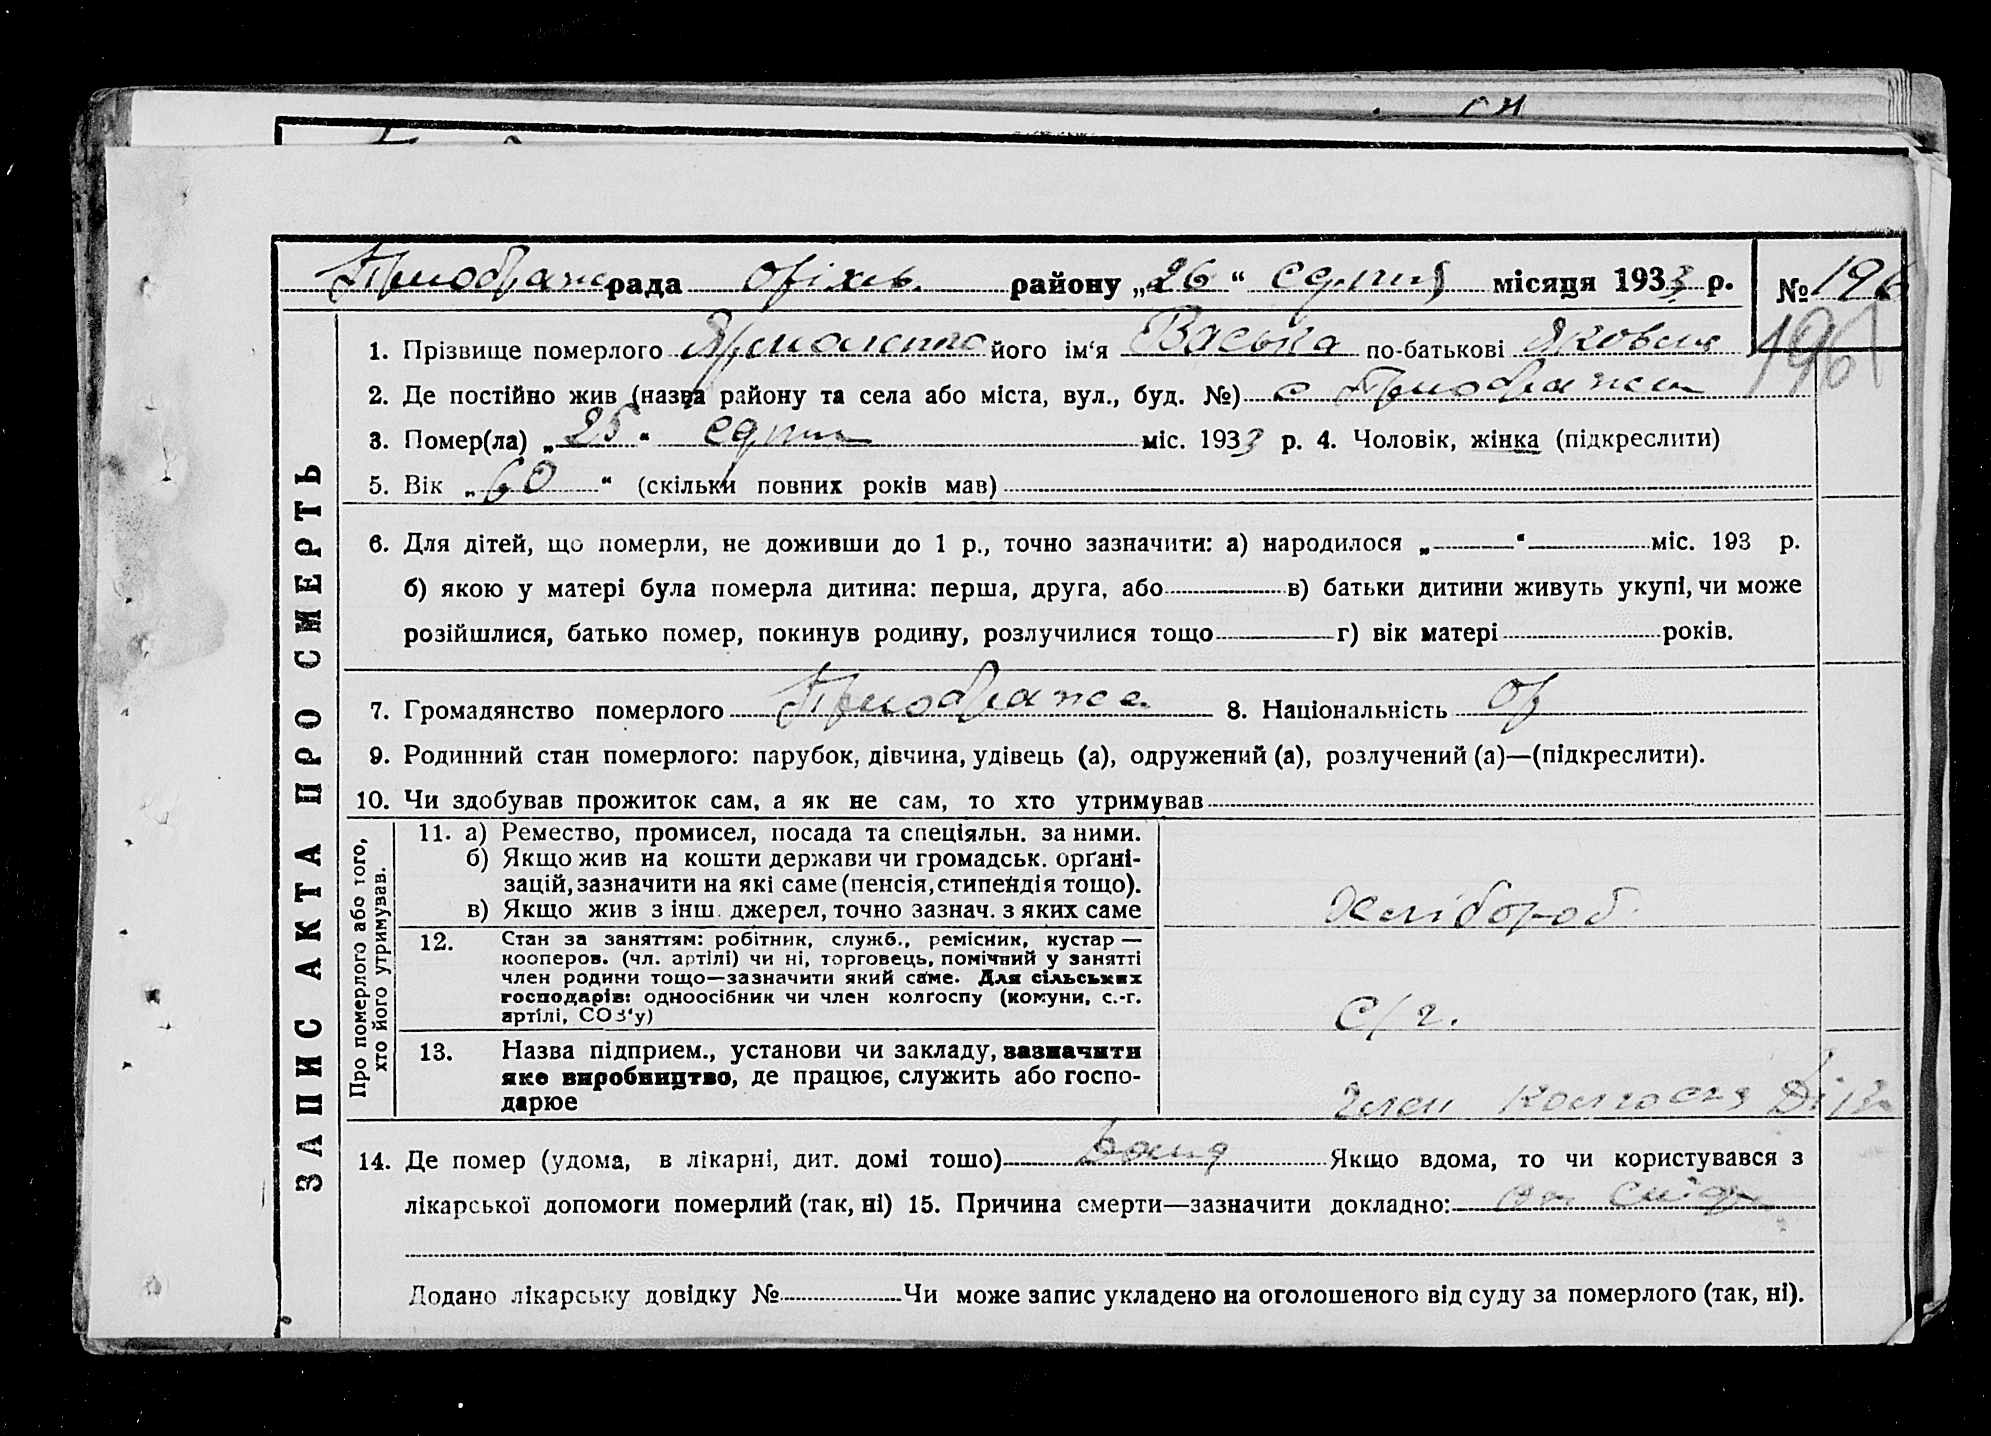 Преображен рада Оріхів. району „26“ серпня місяця 1933 р. № 196
196
1. Прізвище померлого Ярмоленко його ім‘я Васька по-батькові Яковна
2. Де постійно жив (назва району та села або міста, вул., буд. №) с Преображен
3. Помер(ла) „25“ серпн міс. 1933 р. 4. Чоловік, жінка (підкреслити)
5. Вік „60“ (скільки повних років мав)
6. Для дітей, що померли, не доживши до 1 р., точно зазначити: а) народилося „ “ міс. 193 р.
б) якою у матері була померла дитина: перша, друга, або в) батьки дитини живуть укупі, чи може
розійшлися, батько помер, покинув родину, розлучилися тощо г) вік матері років.
7. Громадянство померлого Преображен 8. Національність
9. Родинний стан померлого: парубок, дівчина, удівець (а), одружений (а), розлучений (а)—(підкреслити).
10. Чи здобував прожиток сам, а як не сам, то хто утримував
ЗАПИС АКТА ПРО СМЕРТЬ
Про померлого або того,
хто його утримував.
11. а) Ремество, промисел, посада та спеціяльн. за ними.
б) Якщо жив на кошти держави чи громадськ. орґані-
зацій, зазначити на які саме (пенсія, стипендія тощо).
в) Якщо жив з інш. джерел, точно зазнач. з яких саме
Хлібороб.
12. Стан за заняттям: робітник, служб., ремісник, кустар —
кооперов. (чл. артілі) чи ні, торговець, помічний у занятті
член родини тощо—зазначити який саме. Для сільських
господарів: одноосібник чи член колгоспу (комуни, с.-г.
артілі, СОЗ‘у)
С/г.
13. Назва підприєм., установи чи закладу, зазначити
яке виробництво, де працює, служить або госпо-
дарює
член колгоспу
14. Де помер (удома, в лікарні, дит. домі тощо) Дома Якщо вдома, то чи користувався з
лікарської допомоги померлий (так, ні) 15. Причина смерти—зазначити докладно:
Додано лікарську довідку № Чи може запис укладено на оголошеного від суду за померлого (так, ні).